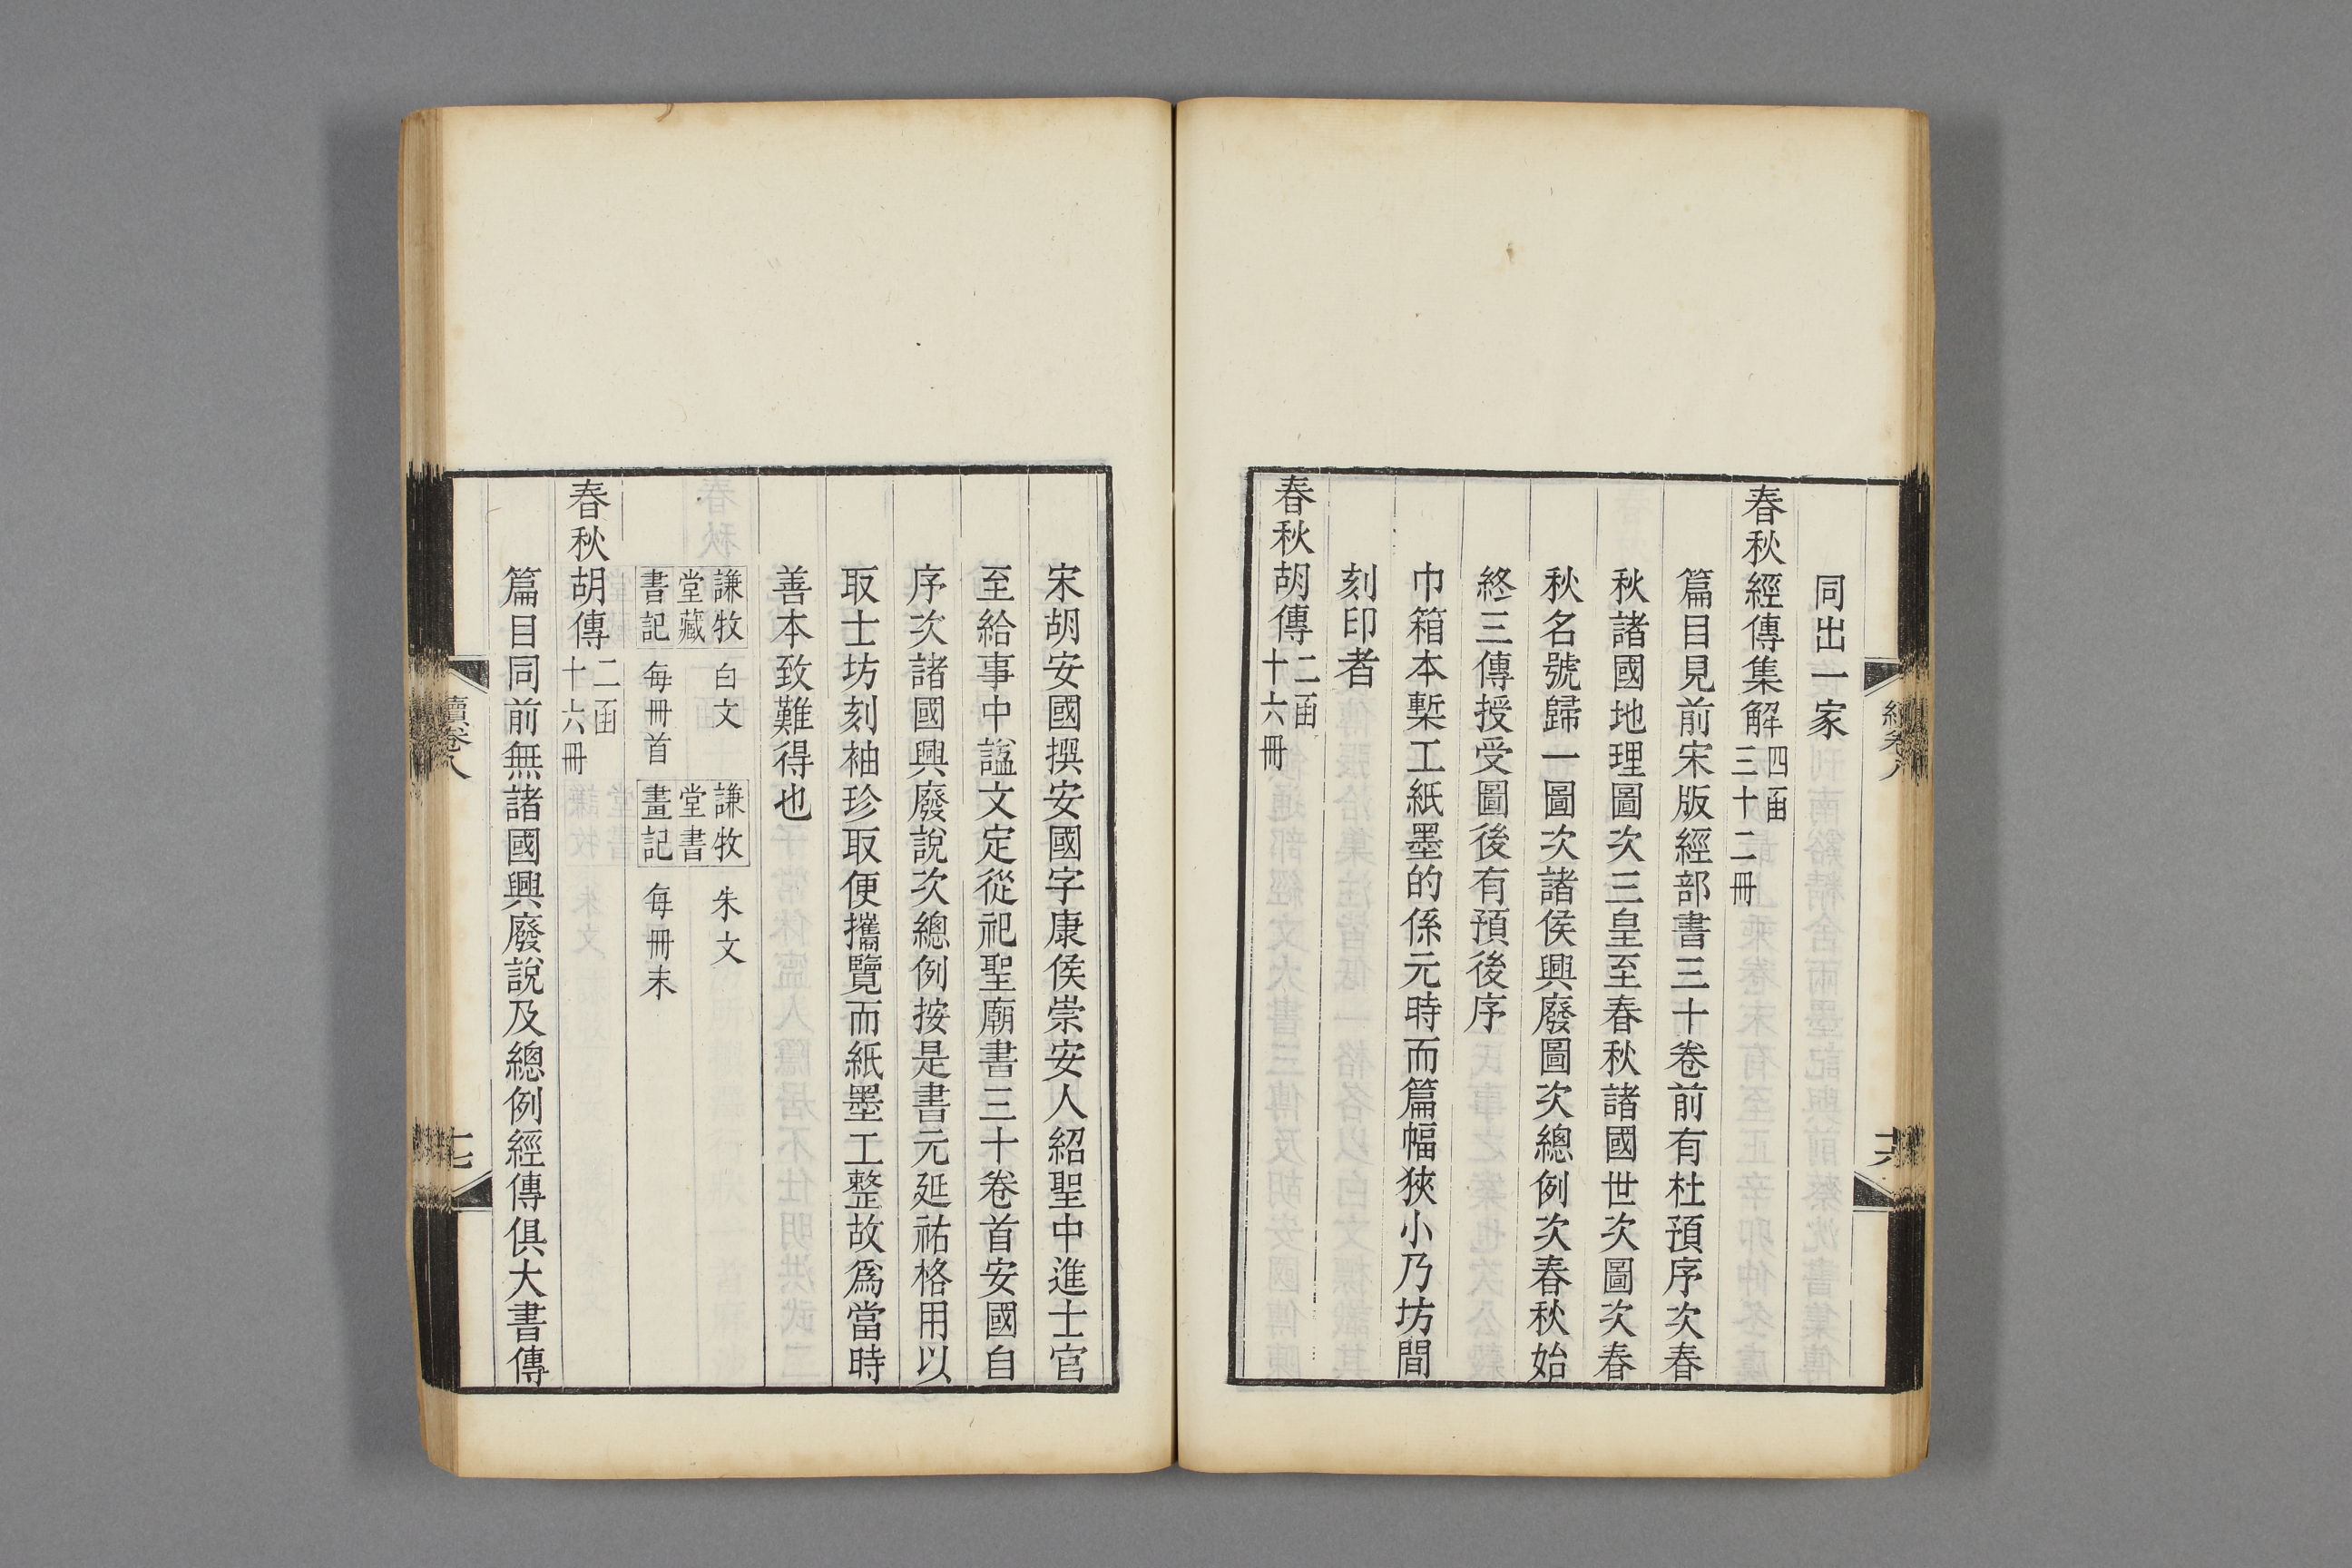 同出一家
春秋經傳集解四函三十二冊
篇目見前宋版經部書三十卷前有杜預序次春
秋諸國地理圖次三皇至春秋諸國世次圖次春
秋名號歸一圖次諸侯興廢圖次總例次春秋始
終三傳授受圖後有預後序
巾箱本槧工紙墨的係元時而篇幅狹小乃坊間
刻印者
春秋胡傳二函十六冊
宋胡安國撰安國字康侯崇安人紹聖中進士官
至給事中諡文定從祀聖廟書三十卷首安國自
序次諸國興廢說次總例按是書元延祐格用以
取士坊刻袖珍取便攜覽而紙墨工整故爲當時
善本致難得也
謙牧堂藏書記 白文 每冊首 謙牧堂書畫記 朱文 每冊末
春秋胡傳二函十六冊
篇目同前無諸國興廢說及總例經傳俱大書傳
續卷八
十七